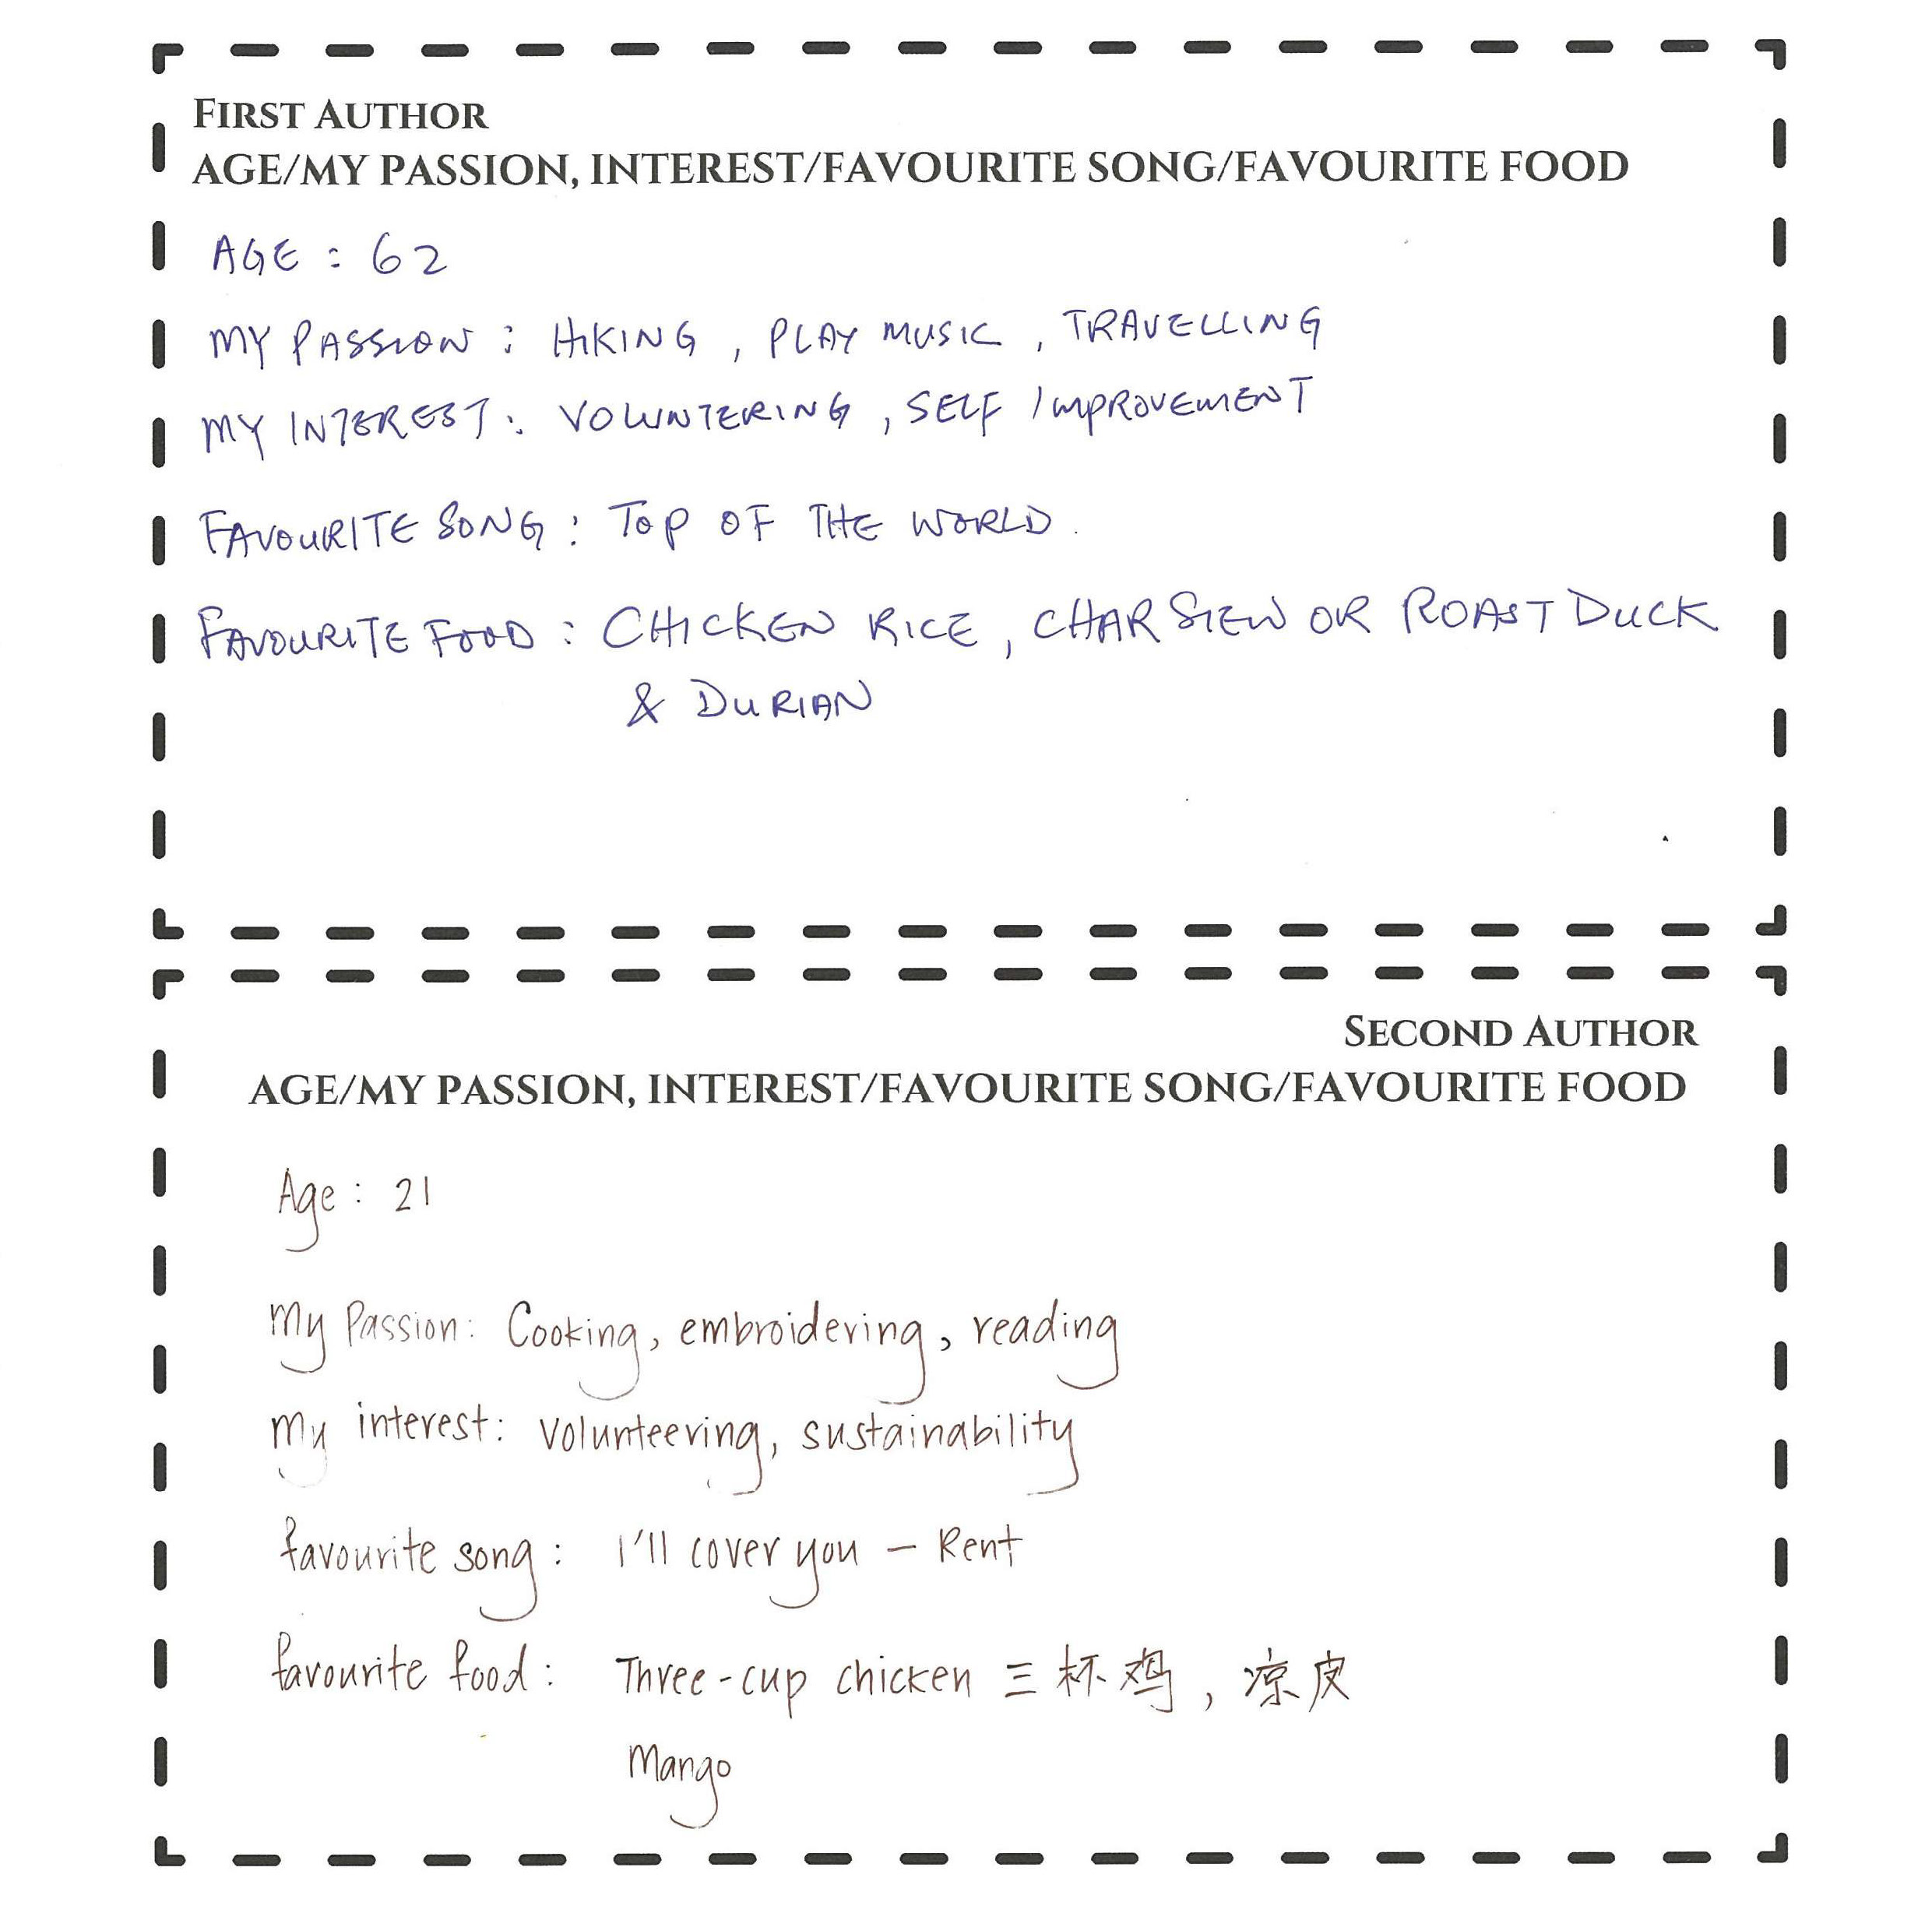 FIRST AUTHOR
AGE/MY PASSION, INTEREST/FAVOURITE SONG/FAVOURITE FOOD
AGE : 62
MY PASSION : HIKING , PLAY MUSIC , TRAVELLING
MY INTEREST : VOLUNTERING , SELF IMPROVEMENT
FAVOURITE SONG : TOP OF THE WORLD .
FAVOURITE FOOD : CHICKEN RICE , CHAR SIEW OR ROAST DUCK
& DURIAN
SECOND AUTHOR
AGE/MY PASSION, INTEREST/FAVOURITE SONG/FAVOURITE FOOD
Age : 21
My Passion: Cooking, embroidering, reading
My interest: Volunteering, sustainability
favourite song : I'll cover you – Rent
favourite food : Three-cup chicken 三杯鸡 , 凉皮
Mango